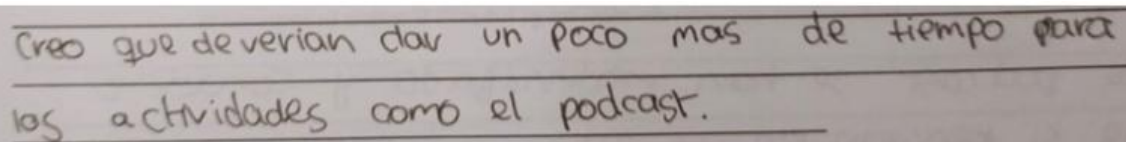 Creo que deverian dar un poco mas de tiempo para
las actividades como el podcast.